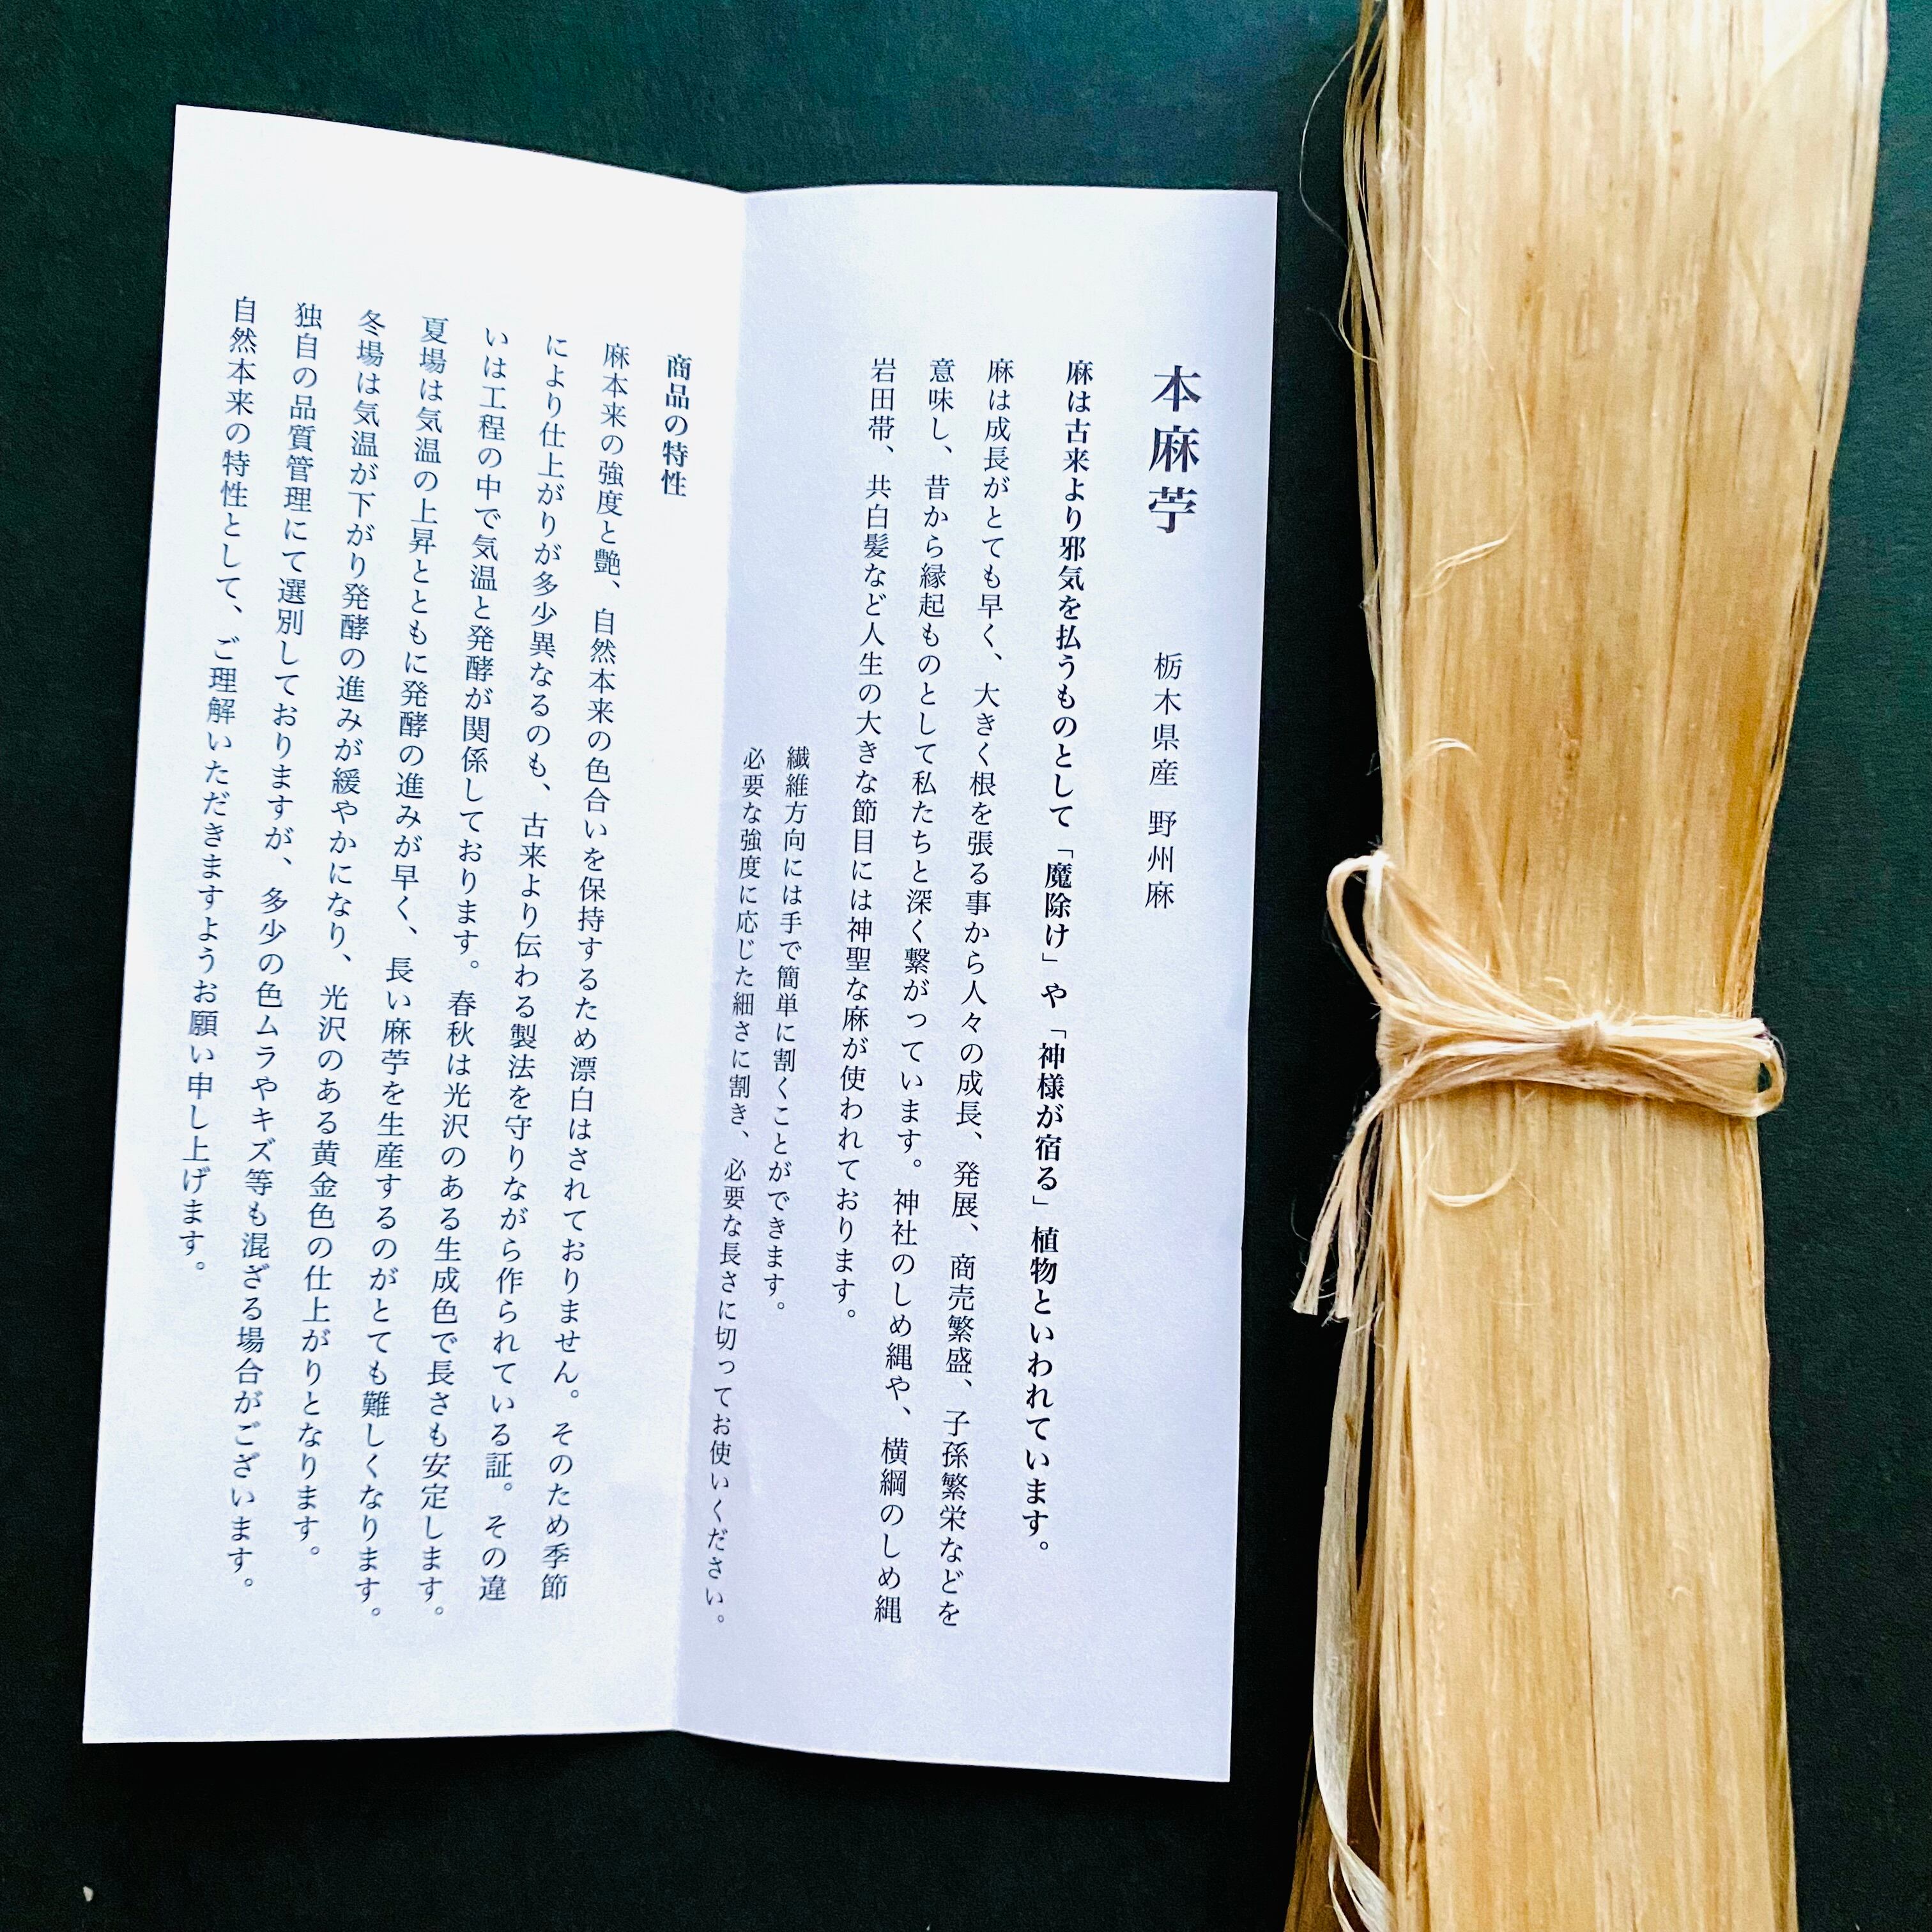 本麻苧 栃木県産 野州麻
麻は古来より邪気を払うものとして「魔除け」や「神様が宿る」植物といわれています。
麻は成長がとても早く、大きく根を張る事から人々の成長、発展、商売繁盛、子孫繁栄などを
意味し、昔から縁起ものとして私たちと深く繋がっています。神社のしめ縄や、横綱のしめ縄
岩田帯、共白髪など人生の大きな節目には神聖な麻が使われております。
繊維方向には手で簡単に割くことができます。
必要な強度に応じた細さに割き、必要な長さに切ってお使いください。
商品の特性
麻本来の強度と艶、自然本来の色合いを保持するため漂白はされておりません。そのため季節
により仕上がりが多少異なるのも、古来より伝わる製法を守りながら作られている証。その違
いは工程の中で気温と発酵が関係しております。春秋は光沢のある生成色で長さも安定します。
夏場は気温の上昇とともに発酵の進みが早く、長い麻苧を生産するのがとても難しくなります。
冬場は気温が下がり発酵の進みが緩やかになり、光沢のある黄金色の仕上がりとなります。
独自の品質管理にて選別しておりますが、多少の色ムラやキズ等も混ざる場合がございます。
自然本来の特性として、ご理解いただきますようお願い申し上げます。